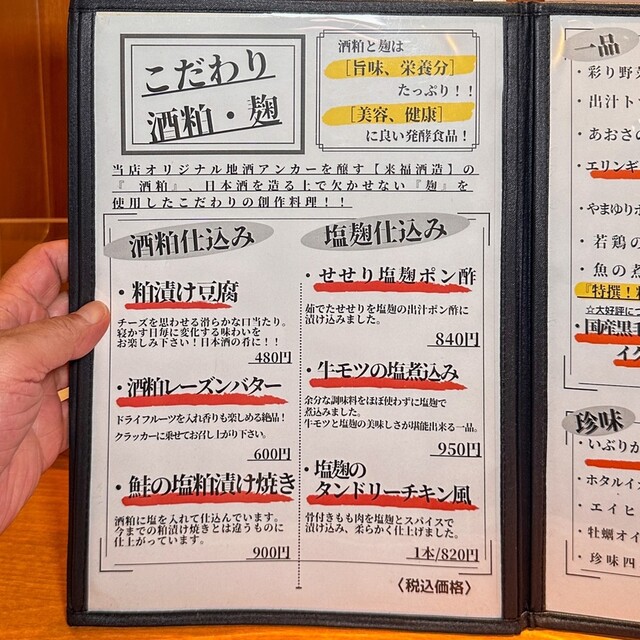 こだわり
酒粕・麹
酒粕と麹は
［旨味、栄養分］
たっぷり！！
［美容、健康］
に良い発酵食品！
当店オリジナル地酒アンカーを醸す【来福酒造】の
『酒粕』、日本酒を造る上で欠かせない『麹』を
使用したこだわりの創作料理！！
酒粕仕込み
・粕漬け豆腐
チーズを思わせる滑らかな口当たり。
寝かす日毎に変化する味わいを
お楽しみ下さい！日本酒の肴に！！
480円
・酒粕レーズンバター
ドライフルーツを入れ香りも楽しめる絶品！
クラッカーに乗せてお召し上がり下さい。
600円
・鮭の塩粕漬け焼き
酒粕に塩を入れて仕込んでいます。
今までの粕漬け焼きとは違うものに
仕上がっています。
900円
塩麹仕込み
・せせり塩麹ポン酢
茹でたせせりを塩麹の出汁ポン酢に
漬け込みました。
840円
・牛モツの塩煮込み
余分な調味料をほぼ使わずに塩麹で
煮込みました。
牛モツと塩麹の美味しさが堪能出来る一品。
950円
・塩麹の
タンドリーチキン風
骨付きもも肉を塩麹とスパイスで
漬け込み、柔らかく仕上げました。
1本/820円
〈税込価格〉
一品
・彩り野菜
・出汁ト
・あおさの
・エリンギ
・やまゆりポ
・若鶏の
・魚の煮
『特撰！
☆大好評につ
・国産黒毛
イク
珍味
・いぶりが
・ホタルイカ
・エイヒ
・牡蠣オイ
・珍味四